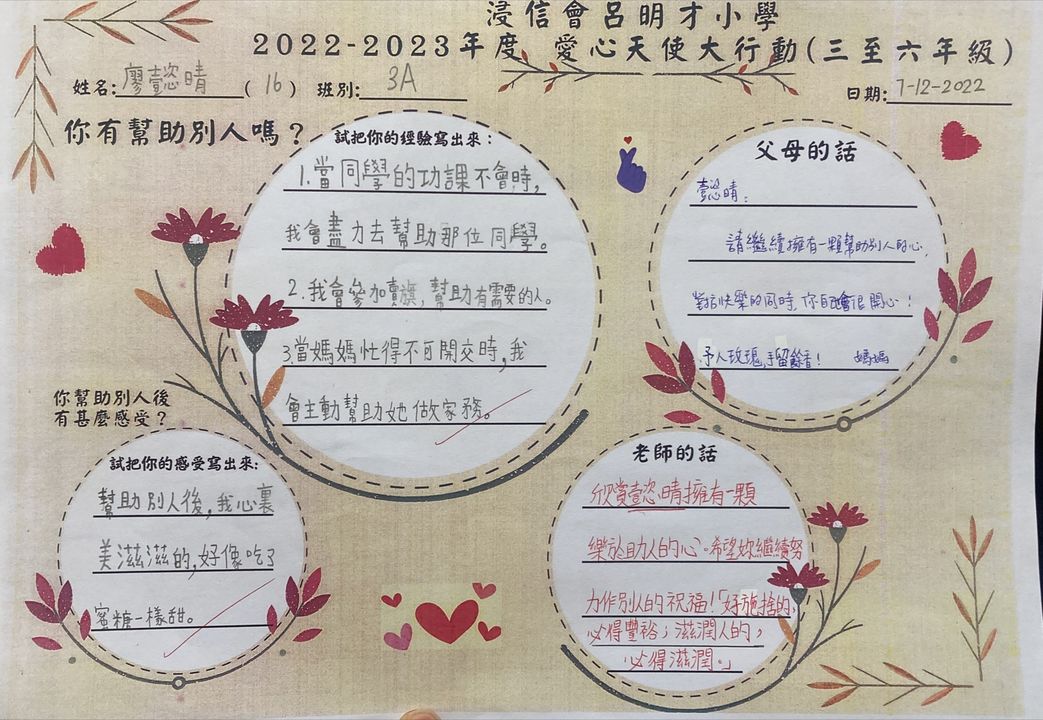 浸信會呂明才小學
2022-2023年度 愛心天使大行動(三至六年級)
姓名:廖壹懿晴(16) 班別:3A
日期:7-12-2022
你有幫助別人嗎?
試把你的經驗寫出來:
1.當同學的功課不會時,
我會盡力去幫助那位同學。
2.我會參加賣旗,幫助有需要的人。
3.當媽媽忙得不可開交時,我
會主動幫助她做家務。
父母的話
懿晴:
請繼續擁有一顆幫助別人的心,
對方快樂的同時,你自己也會很開心!
予人玫瑰,手留餘香! 媽媽
你幫助別人後
有甚麼感受?
試把你的感受寫出來:
幫助別人後,我心裏
美滋滋的,好像吃了
蜜糖一樣甜。
老師的話
欣賞懿晴擁有一顆
樂於助人的心。希望妳繼續努
力作別人的祝福!「好施捨的,
必得豐裕;滋潤人的,
必得滋潤。」